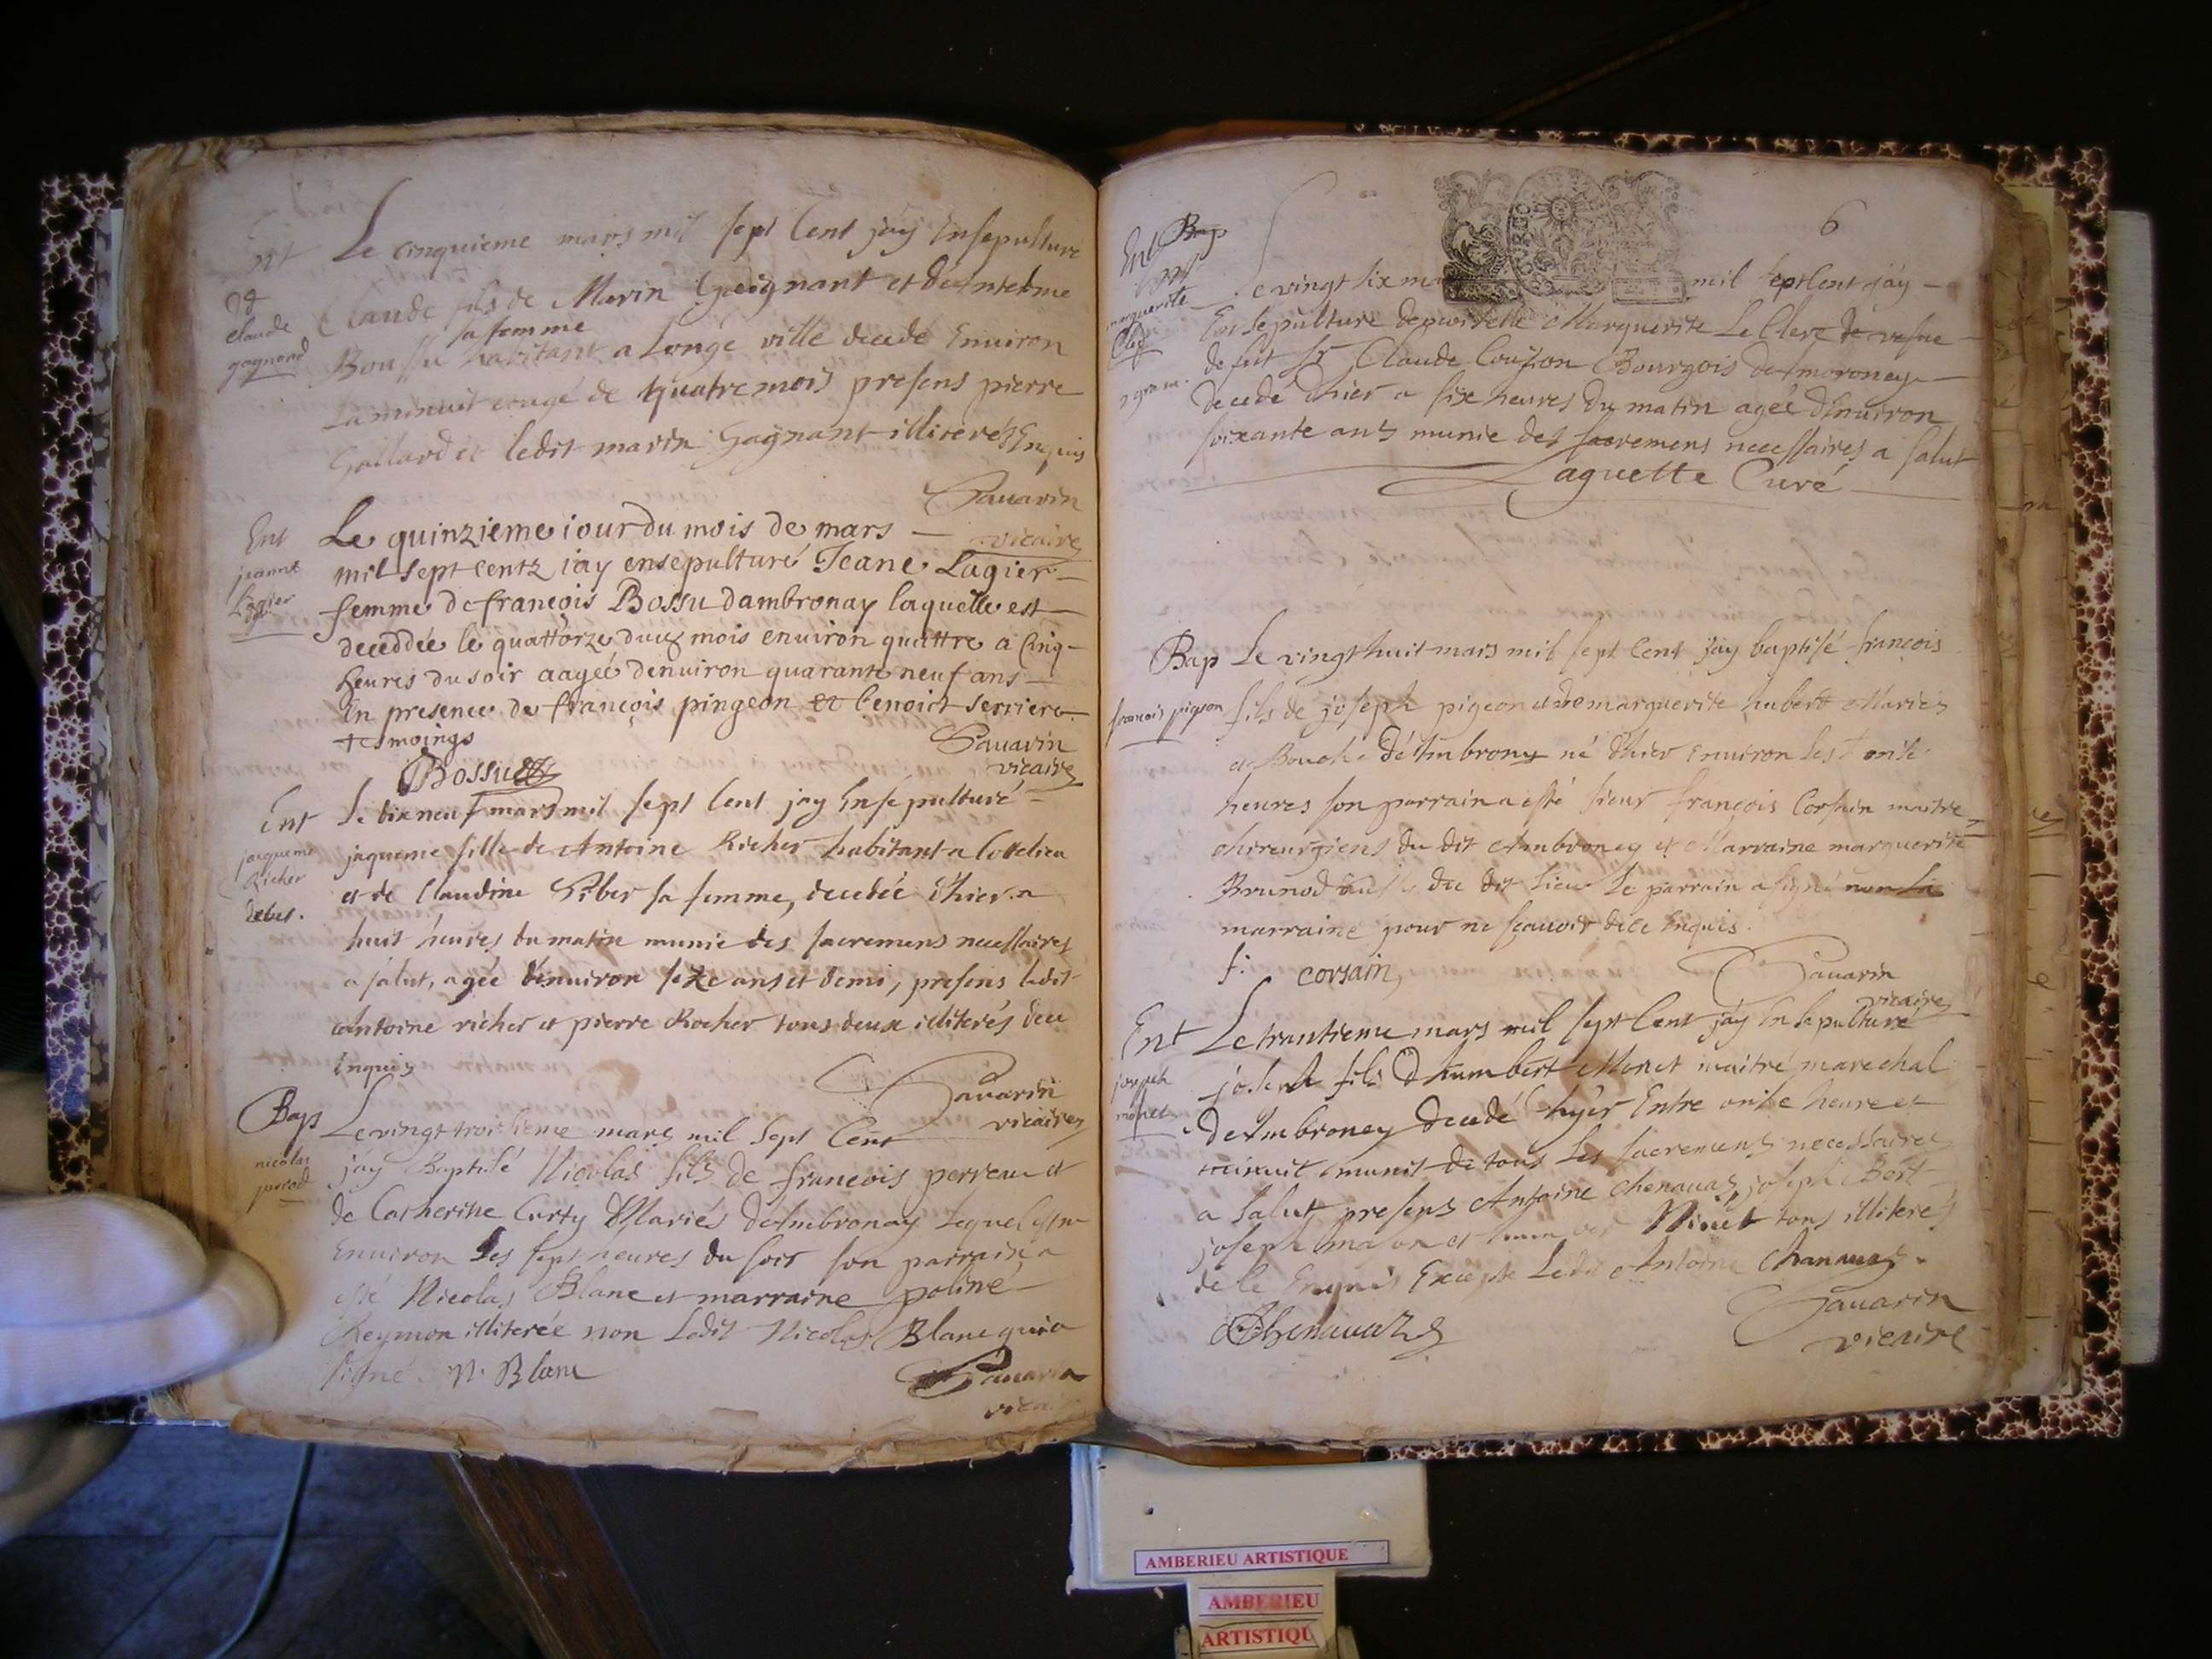 Ent
de
claude
gagnard
Le cinquieme mars mil sept Cent jáy Ensepulturé
Claude fils de Marin Gaignant et de
sa femme
Bossu habitant a Longe ville decedé Environ
La minuit et agé de quatre mois presens pierre
Gallard et ledit marin Gagnant illiterés Enquis
Sauarin
vicaire
Ent
jeanne
Lagier
Le quinzieme iour du mois de mars —
mil sept centz iay ensepulturé Jeane Lagier —
femme de françois Bossu dambronay laquelle est —
deceddée le quattorze dud mois enuiron quattre a Cinq —
heures du soir aageé denuiron quarante neuf ans —
En presence de françois pingeon et benoict serriere
tesmoings
Sauarin
vicaire
Bossu
Ent
jaqueme
Richer
Le dixneuf mars mil sept Cent jay Ensépulturé —
jaqueme fille de Antoine Richer habitant a Cotelieu
et de Claudine Giber sa femme, decedée d'hier a
huit heures du matin munie des sacremens necessaires
a salut, agée d'enuiron seze ans et demi, presens ledit
Antoine richer et pierre Rocher tous deux illiterés dece
Enquis
Sauarin
vicaire
Bap
nicolas
perrod
Le vingt troisieme mars mil sept Cent
jáy Baptisé Nicolas fils de francois perreau et
de Catherine Curty Mariés d'Ambronay Lequel
Enuiron Les sept heures du soir son parrain a
esté Nicolas Blanc et marraine poline
Reymon illiterée non Ledit Nicolas Blanc qui a
signé. N. Blanc
Sauarin
vicaire
6
Bap
Ent
marguerite
Le vingt six mil sept Cent jáy —
En sepulture demoiselle Marguerite Le Clerc vefue
de feu Sr Claude Couzon Bourgois
decedé d'hier a six heures du matin agée d'Enuiron
soixante ans munie des sacremens necessaires a salut
Laguette Curé
Bap
francois pigeon
Le vingt huit mars mil sept Cent jáy baptisé françois
fils de joseph pigeon et de marguerite hubert Mariés
d'Ambrony né d'hier enuiron les onse
heures son parrain a esté sieur françois Corsain maitre
chireurgiens du dit Ambroney et Marraine marguerite
Brunod du dit Lieu Le parrain a signé non La
marraine pour ne scauoir dece enquis.
f: corsain
Sauarin
vicaire
Ent
joseph
monet
Le trantieme mars mil sept Cent jáy En sepulturé
joseph fils d'humbert Monet maitre marechal
d'Ambroney decedé hyer Entre onse heure et
minuit munit de tous les sacremens necessaires
a Salut presens Antoine Chenauas, joseph Bert
joseph et tous illiterés
de le Enquis Excepté Ledit Antoine Chanauas.
Chenauaz
Sauarin
vicaire
AMBERIEU ARTISTIQUE
AMBERIEU
ARTISTIQU